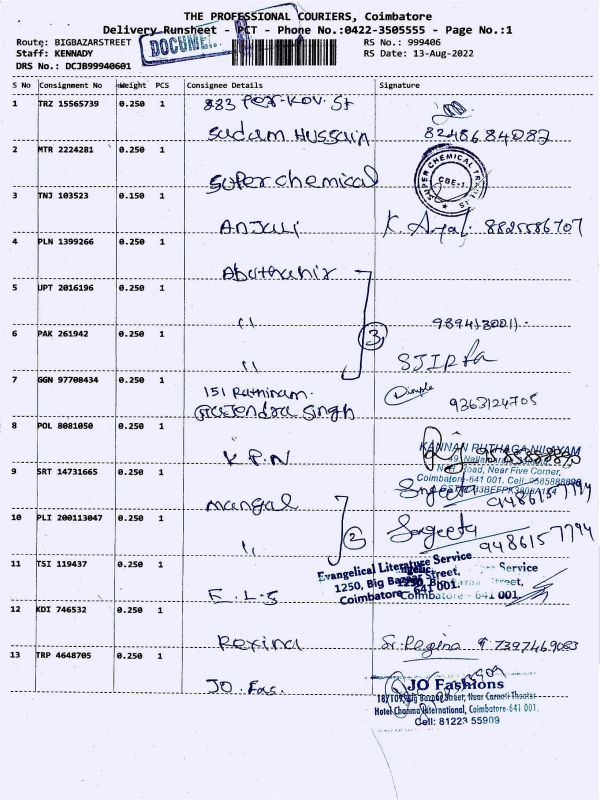 THE PROFESSIONAL COURIERS, Coimbatore
Delivery Runsheet - PCT - Phone No.:0422-3505555 - Page No.:1
Route: BIGBAZARSTREET RS No.: 999406
Staff: KENNADY RS Date: 13-Aug-2022
DRS No.: DCJB99940601
S No Consignment No Weight PCS Consignee Details Signature
1 TRZ 15565739 0.250 1 883
Saddam Hussain 8248684087
2 MTR 2224281 0.250 1
Super chemical SUPER CHEMICAL CBE-1
3 TNJ 103523 0.150 1
Anjali K. 8825586707
4 PLN 1399266 0.250 1
5 UPT 2016196 0.250 1
" 9894130011
6 PAK 261942 0.250 1 3
"
7 GGN 97708434 0.250 1 151 Dimple 9363124705
Singh
8 POL 8081050 0.250 1
K P N
KANNAN PUTHAGA NILAYAM
Near Five Corner,
Coimbatore-641 001.
9 SRT 14731665 0.250 1
mangal Sngeeta 9486157794
10 PLI 200113047 0.250 1 2
" Sngeeta 9486157794
11 TSI 119437 0.250 1
Evangelical Literature Service
1250, Big Bazaar Street,
Coimbatore - 641 001.
E. L. S
12 KDI 746532 0.250 1
Rexina Sr. Regina 7397469083
13 TRP 4648705 0.250 1
JO. Fas.
JO Fashions
Big Bazaar Street, Near Carnoti Theater
Hotel Channma International, Coimbatore-641 001.
Cell: 81223 55909